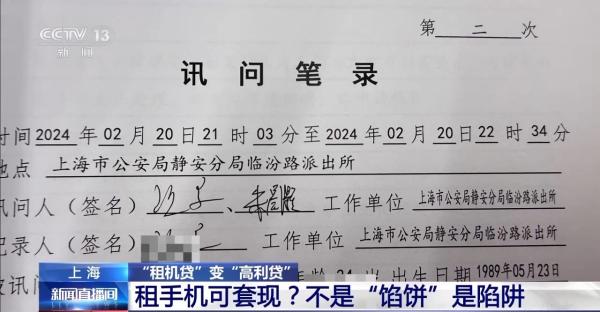 CCTV 13
新闻
第 二 次
讯问笔录
时间 2024 年 02 月 20 日 21 时 03 分至 2024 年 02 月 20 日 22 时 34 分
地点 上海市公安局静安分局临汾路派出所
讯问人（签名） 、 工作单位 上海市公安局静安分局临汾路派出所
记录人（签名） 工作单位 上海市公安局静安分局临汾路派出所
被讯问 出生日期 1989年05月23日
上海 “租机贷”变“高利贷”
新闻直播间 租手机可套现？不是“馅饼”是陷阱